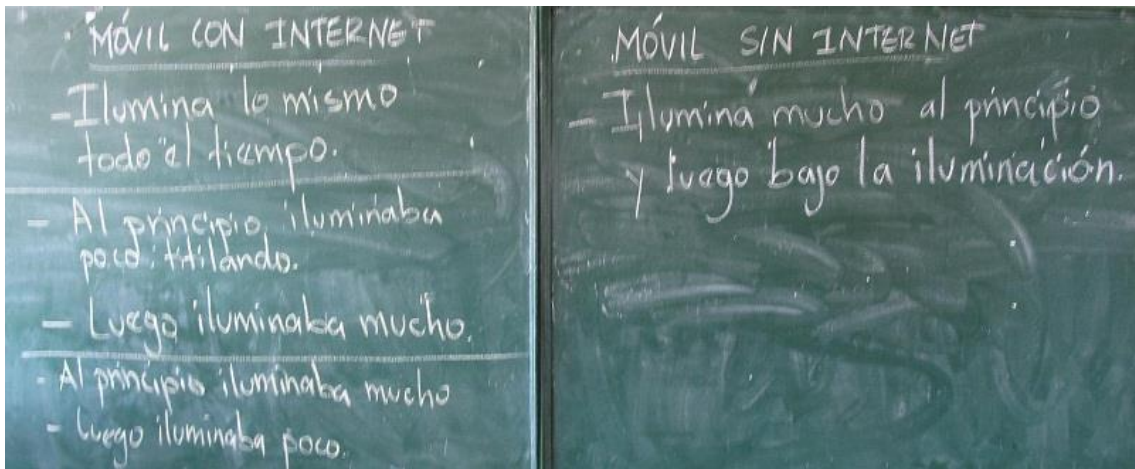 MÓVIL CON INTERNET
- Ilumina lo mismo
todo el tiempo.
- Al principio iluminaba
poco, titilando.
- Luego iluminaba mucho.
- Al principio iluminaba mucho
- Luego iluminaba poco.
MÓVIL SIN INTERNET
- Ilumina mucho al principio
y luego bajo la iluminación.